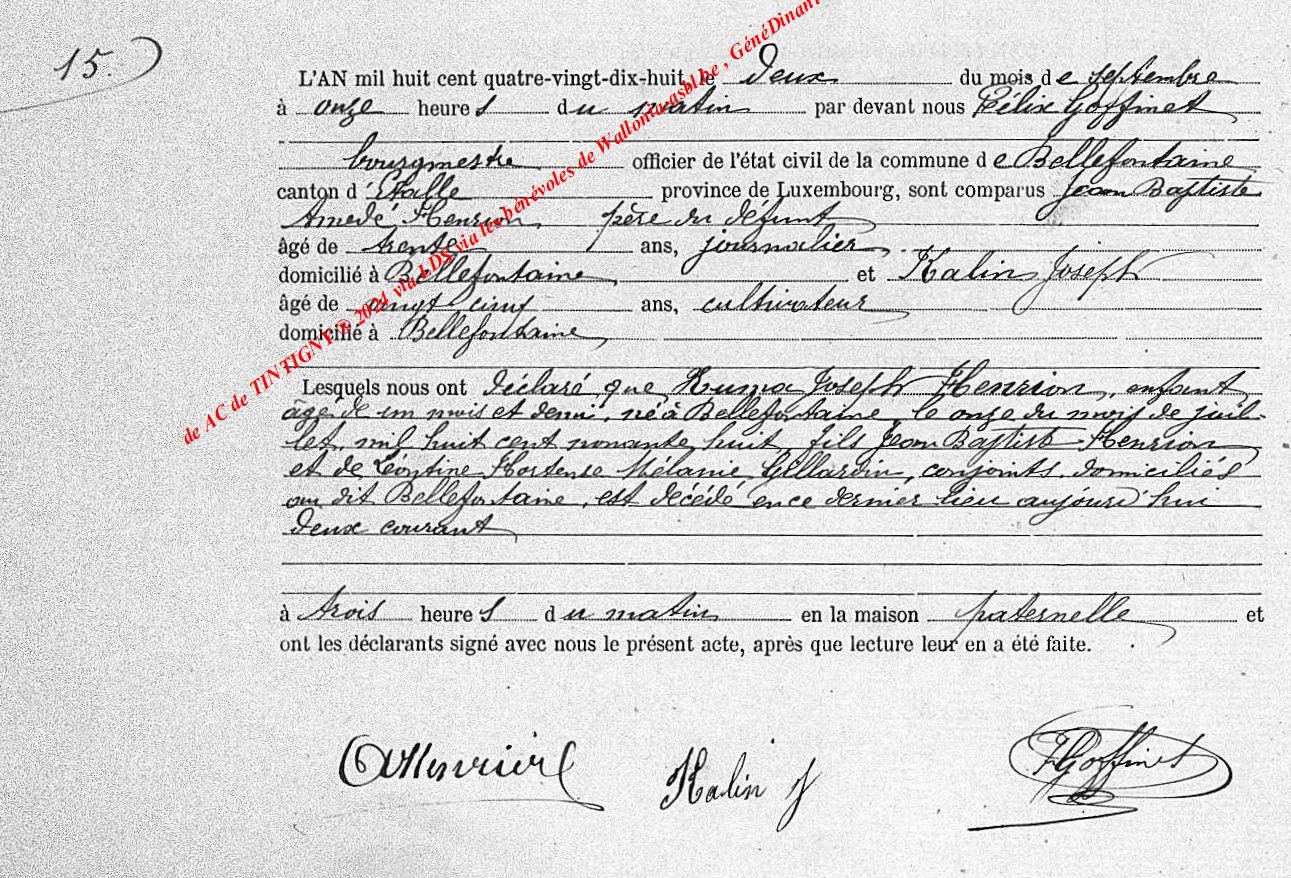 15.
L'AN mil huit cent quatre-vingt-dix-huit, le deux du mois de septembre
à onze heures du matin par devant nous Félix Goffinet
bourgmestre officier de l'état civil de la commune de Bellefontaine
canton d'Etalle province de Luxembourg, sont comparus Jean Baptiste
Amedé Henrion, père du défunt
âgé de trente ans, journalier
domicilié à Bellefontaine, et Kalin Joseph
âgé de vingt cinq ans, cultivateur
domicilié à Bellefontaine
Lesquels nous ont déclaré que Numa Joseph Henrion, enfant
âgé de un mois et demi, né à Bellefontaine, le onze du mois de juil-
let, mil huit cent nonante huit, fils Jean Baptiste Henrion
et de Léontine Hortense Mélanie Gillardin, conjoints domiciliés
au dit Bellefontaine, est décédé en ce dernier lieu aujourd'hui
deux courant
à trois heures du matin en la maison paternelle et
ont les déclarants signé avec nous le présent acte, après que lecture leur en a été faite.
Kalin J
FGoffinet
de AC de TINTIGNY © 2021 via LDS via les bénévoles de Wallonia asbl.be , GénéDinant